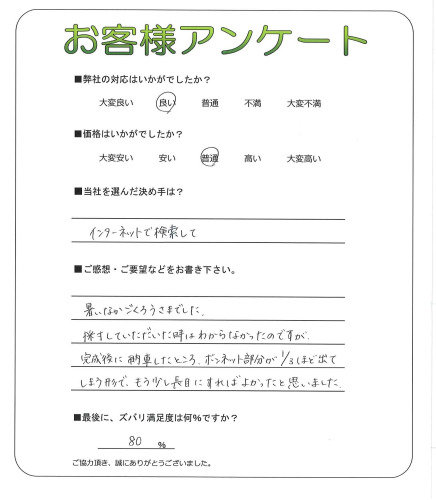 お客様アンケート
■弊社の対応はいかがでしたか？
大変良い 良い 普通 不満 大変不満
■価格はいかがでしたか？
大変安い 安い 普通 高い 大変高い
■当社を選んだ決め手は？
インターネットで検索して
■ご感想・ご要望などをお書き下さい。
暑いなかごくろうさまでした。
採寸していただいた時はわからなかったのですが、
完成後に納車したところ、ボンネット部分が1/3ほど出て
しまう形で、もう少し長目にすればよかったと思いました。
■最後に、ズバリ満足度は何%ですか？
80 %
ご協力頂き、誠にありがとうございました。